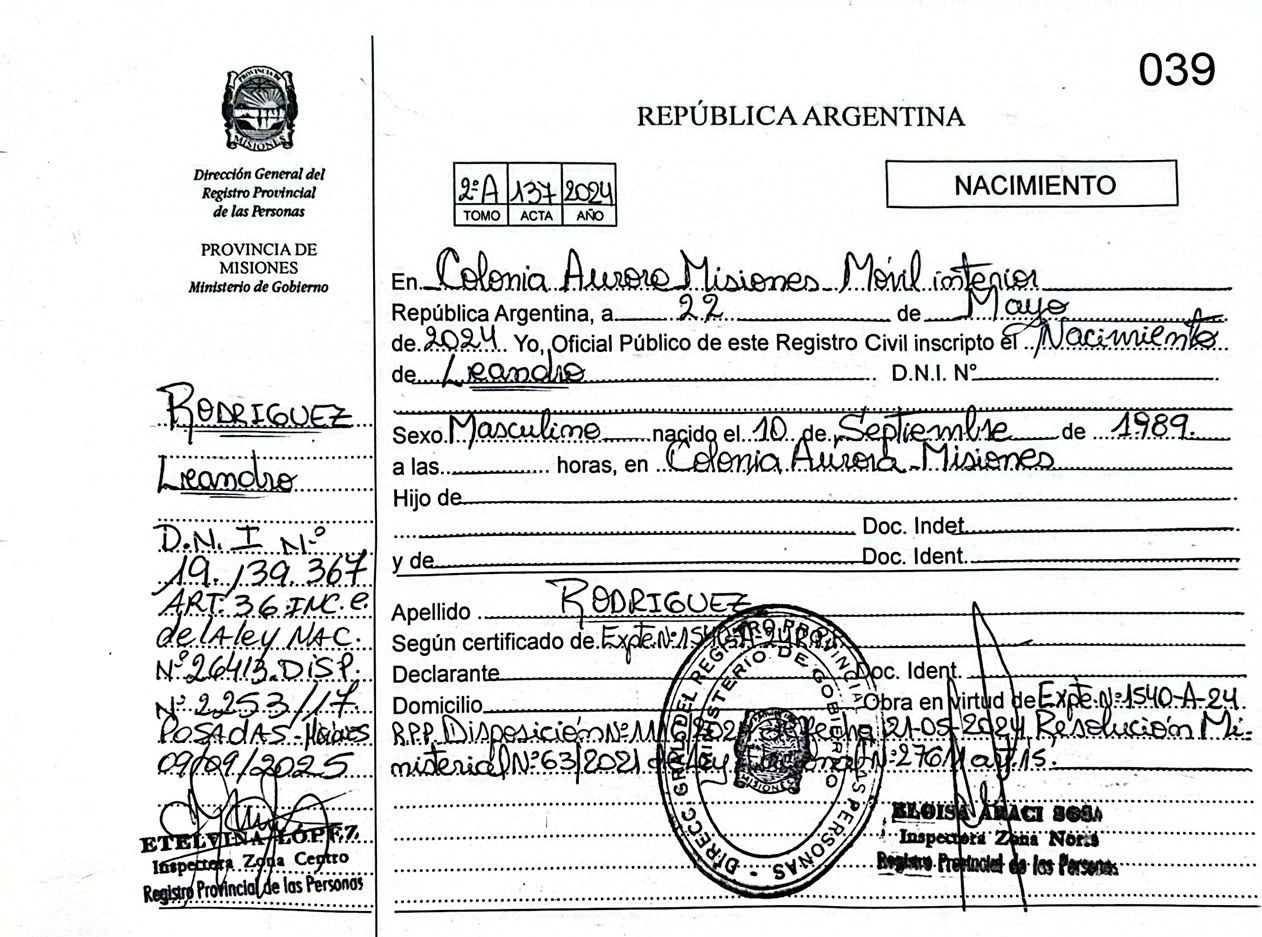 039
PROVINCIA DE
MISIONES
Dirección General del
Registro Provincial
de las Personas
PROVINCIA DE
MISIONES
Ministerio de Gobierno
RODRIGUEZ
Leandro
D.N.I Nº
19.139.367
ART. 36 INC. e.
de la ley NAC.
Nº 26413. DISP.
Nº 2253/17
POSADAS-Misiones
09/09/2025
ETELVINA LÓPEZ
Inspectora Zona Centro
Registro Provincial de las Personas
REPÚBLICA ARGENTINA
2º A 137 2024
TOMO ACTA AÑO
NACIMIENTO
En Colonia Aurora Misiones Móvil interior
República Argentina, a 22 de Mayo
de 2024 Yo, Oficial Público de este Registro Civil inscripto el Nacimiento
de Leandro D.N.I. Nº
Sexo Masculino nacido el 10 de Septiembre de 1989.
a las horas, en Colonia Aurora-Misiones
Hijo de
Doc. Indet.
y de Doc. Ident.
Apellido RODRIGUEZ
Según certificado de Expte.Nº1540-A-24
Declarante Doc. Ident.
Domicilio Obra en virtud de Expte.Nº1540-A-24
R.P.P. Disposición Nº de fecha 21-05-2024 Resolución Mi-
nisterial Nº 63/2021 de Ley Nº 27611 art. 15.
DIRECC. GRAL. DEL REGISTRO PROVINCIAL DE LAS PERSONAS
MINISTERIO DE GOBIERNO
MISIONES
ELOISA ARACI SOSA
Inspectora Zona Norte
Registro Provincial de las Personas